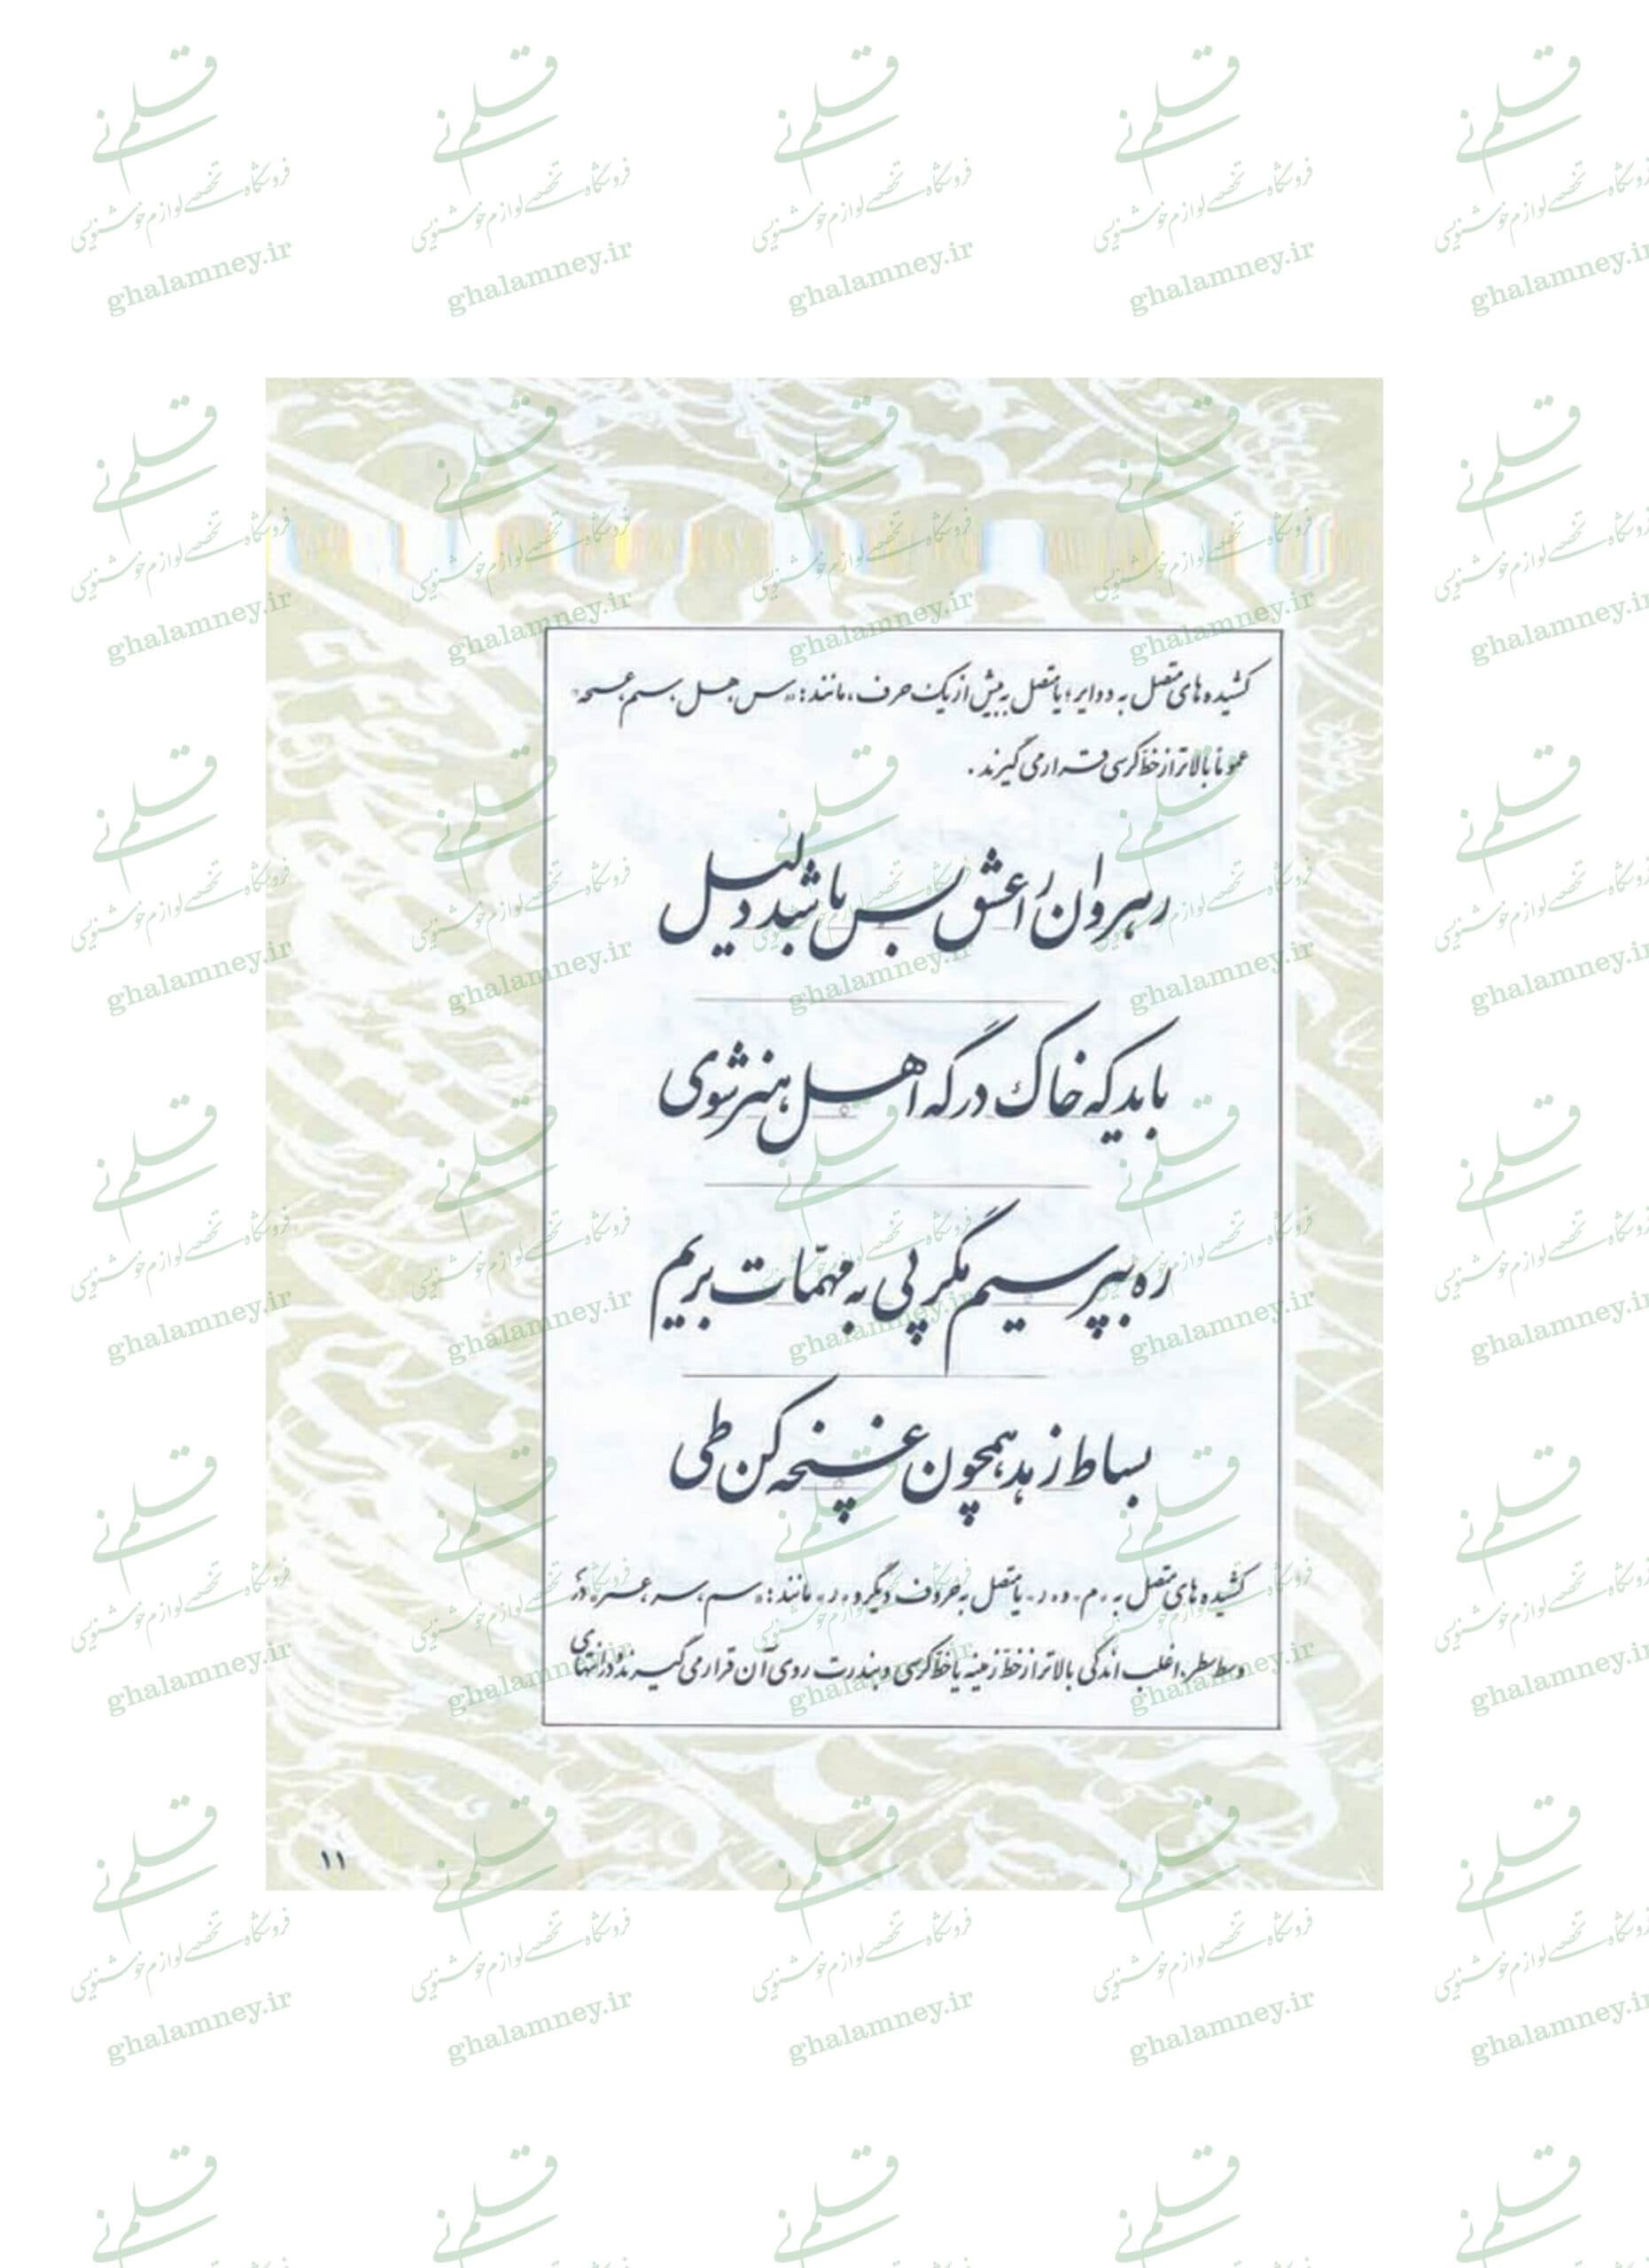 کشیده های متصل به دوایر؛ یا متصل به بیش از یک حرف، مانند: «س، هل، سم، عسحه»
عموماً بالاتر از خط کرسی قرار می گیرند.
رهروان را عشق بس باشد دلیل
باید که خاک درگه اهل هنر شوی
ره بپرسیم مگر پی به مهمّات بریم
بساط زهد همچون غنچه کن طی
کشیده های متصل به «م، و، ر» یا متصل به حروف دیگر و «ر» مانند: «سم، سر، عسر» در
وسط سطر، اغلب اندکی بالاتر از خط زمینه یا خط کرسی و بندرت روی آن قرار می گیرند و در انتهای
۱۱
قلم نی
فروشگاه تخصصی لوازم خوشنویسی
ghalamney.ir